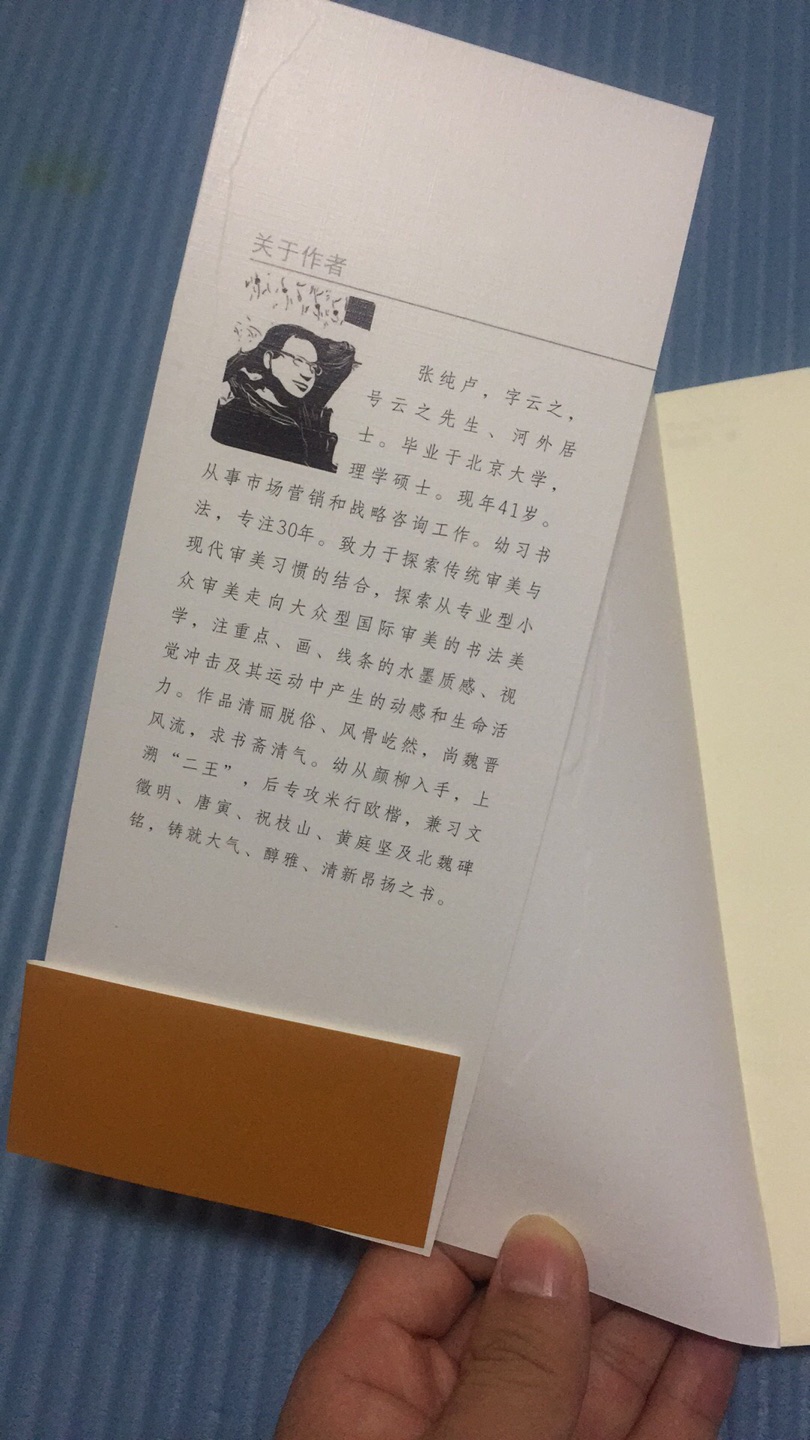 关于作者
张纯卢，字云之，
号云之先生、河外居
士。毕业于北京大学，
理学硕士。现年41岁。
从事市场营销和战略咨询工作。幼习书
法，专注30年。致力于探索传统审美与
现代审美习惯的结合，探索从专业型小
众审美走向大众型国际审美的书法美
学，注重点、画、线条的水墨质感、视
觉冲击及其运动中产生的动感和生命活
力。作品清丽脱俗、风骨屹然，尚魏晋
风流，求书斋清气。幼从颜柳入手，上
溯“二王”，后专攻米行欧楷，兼习文
徵明、唐寅、祝枝山、黄庭坚及北魏碑
铭，铸就大气、醇雅、清新昂扬之书。